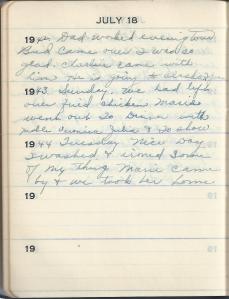 JULY 18
1942. Dad worked evening tour
Bud came over I was so
glad. Charlie came with
him He is going to
1943. Sunday. We had left
over fried chicken Marie
went out to Dinner with
Julia & to show
1944 Tuesday Nice Day
I washed & irned some
of my thing Marie came
by & we took her home
19
19